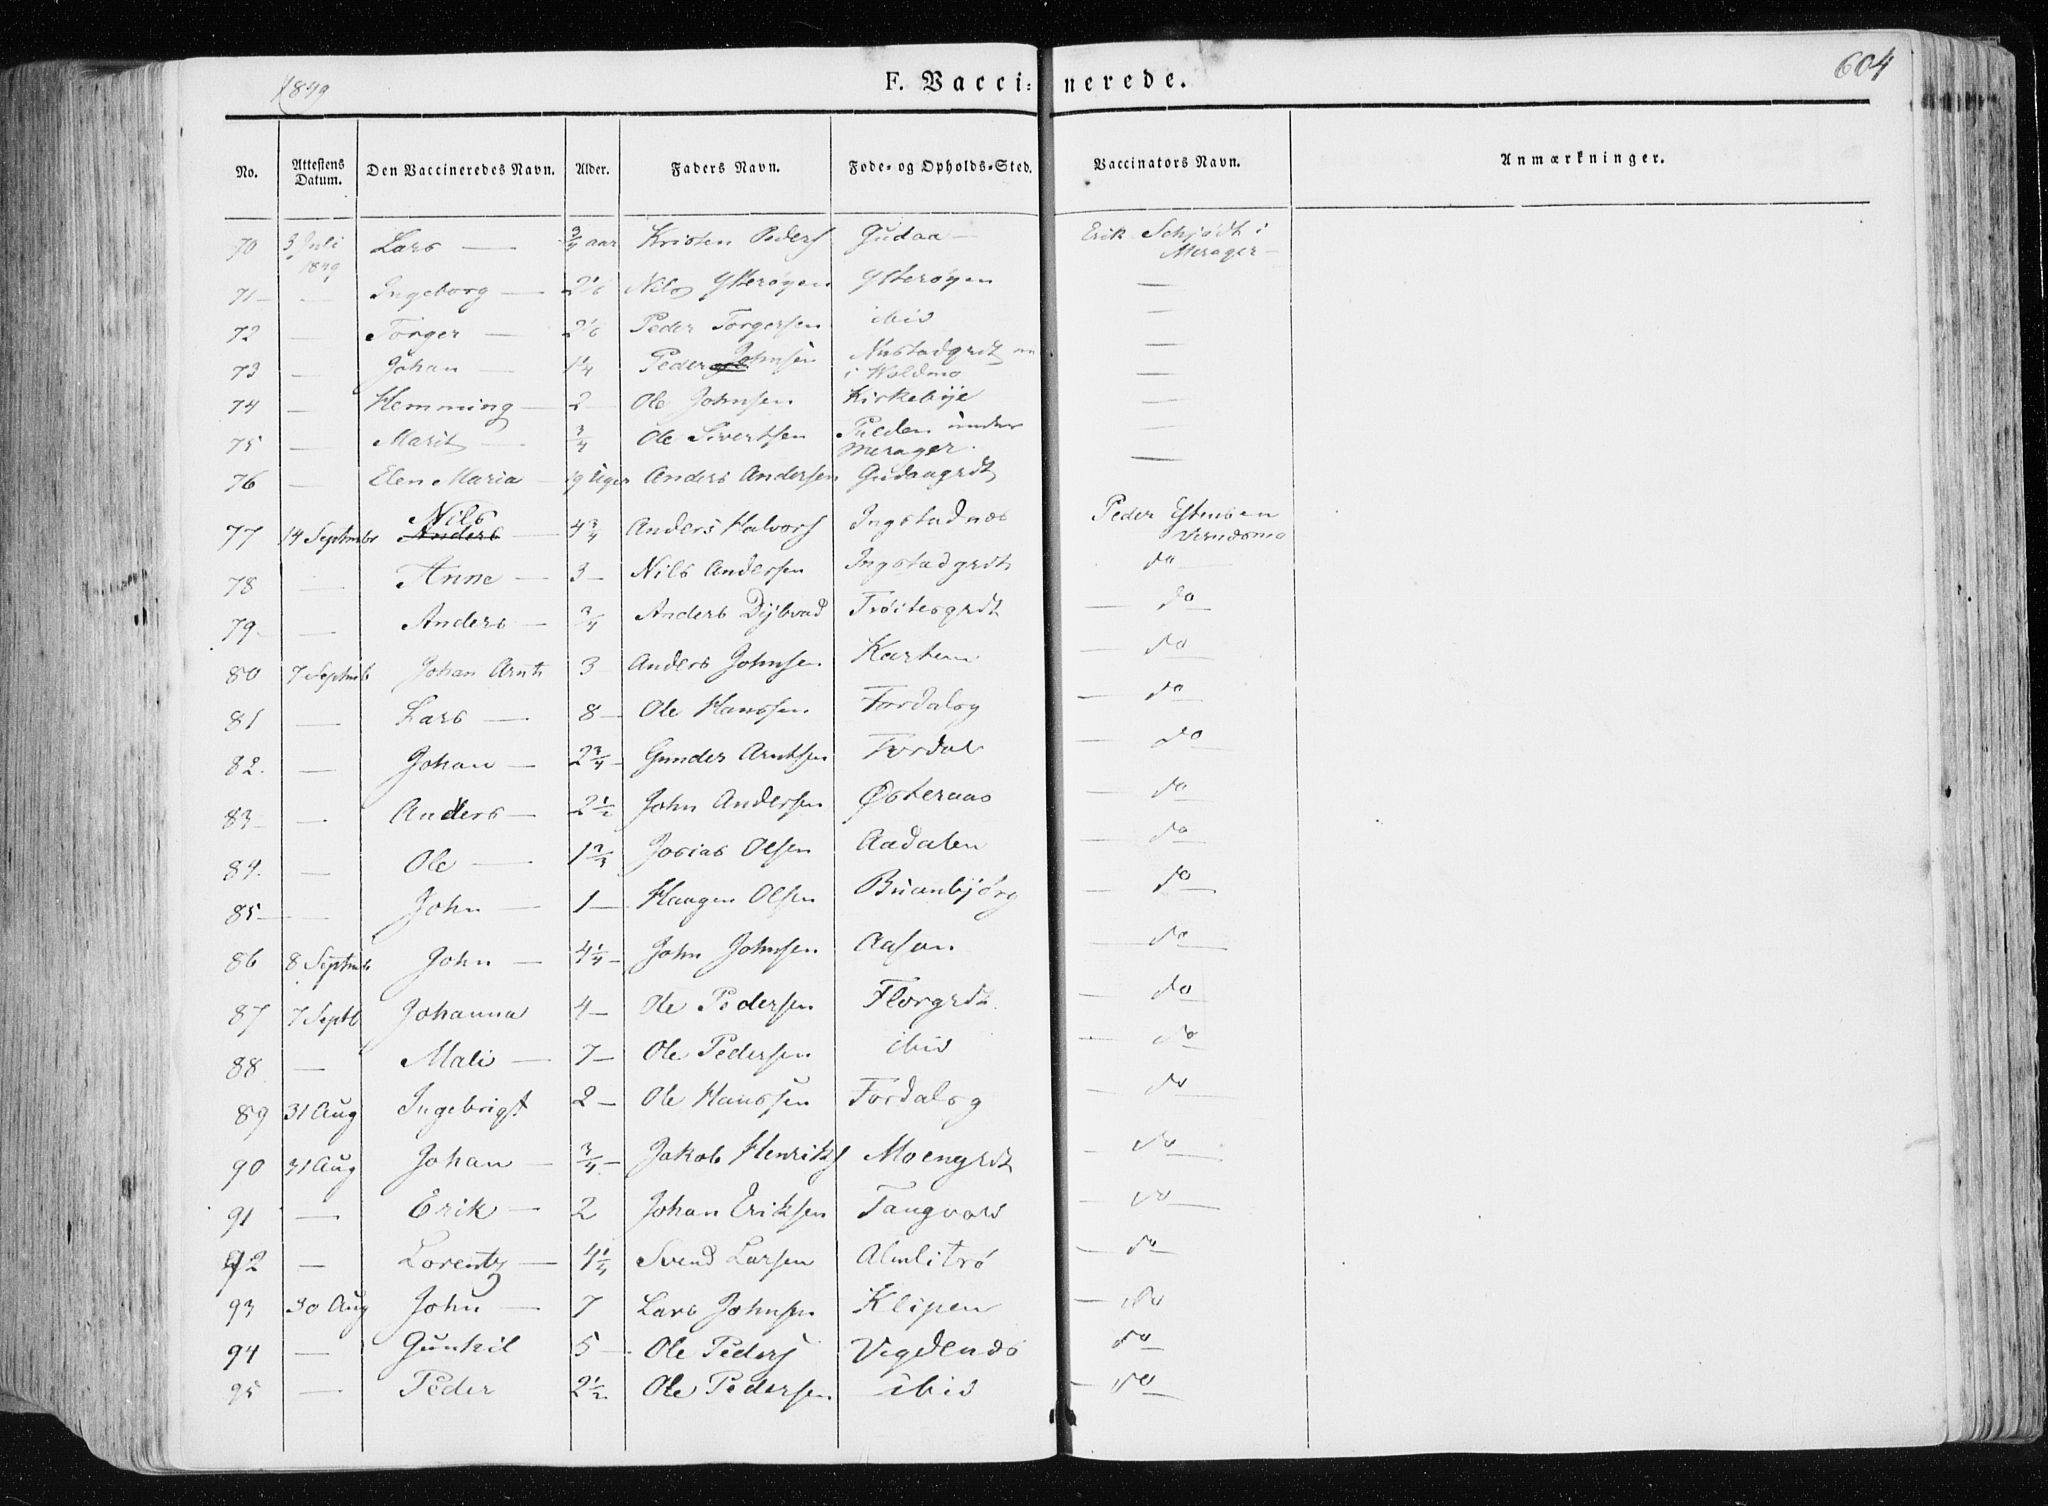 1849
F. Vaccinerede.
604
No. Attestens Datum. Den Vaccineredes Navn. Alder. Faders Navn. Føde- og Opholds-Sted. Vaccinators Navn. Anmærkninger.
70 3 Juli 1849 Lars — 3/4 aar Kristen Peders Gudaa — Erik Schjødt i Merager —
71 — — Ingeborg — Nils Ytterøyen Ytterøyen —
72 — Torger — Peder Torgersen ibid —
73 — Johan — 1 1/4 Peder Johnsen i Woldmo —
74 — Hemming — 2 — Ole Johnsen Kirkebye —
75 — Marit — 3/4 Ole Sivertsen under Merager. —
76 — Elen Maria — 19 Uger Anders Andersen Gudaagrdt —
77 14 Septmbr Nils Anders — 4 3/4 Anders Halvors Ingstadnes Peder Estensen
78 — Anne — 3 — Nils Andersen Ingstadgrdt do
79 — — Anders — 3/4 Anders Dybvad Trøitesgrdt — do
80 7 Septmb Johan Arnt 3 — Anders Johnsen — do
81 — Lars — 8 — Ole Hanssen Fordalsy — do
82. — Johan — 2 3/4 — Gunder Arntsen Fordal — do
83 — — Anders — 2 1/2 John Andersen Østeraas — do
84. — Ole — 1 2/3 Josias Olsen Aadalen — do
85 — — John — 1 — Haagen Olsen — do
86 8 Septmb John — 4 1/4 — John Johnsen Aasan — do
87 7 Septb Johanna 4 — Ole Pedersen Florgrdt. — do
88 — Mali — 7 — Ole Pedersen ibid — do
89 31 Aug Ingebrigt 2 — Ole Hanssen Fordalsy — do
90 31 Aug Johan — 3/4 — Jakob Henriks Moengrdt — do
91 — Erik — 2 Johan Eriksen — do
92 — Lorentz — 4 1/4 Svend Larsen Almlitrø — do
93 30 Aug John — 7 Lars Johnsen Klipen — do
94 — Gunhil 5 — Ole Peders — do
95 — Peder 2 1/2 Ole Pedersen ibid — do